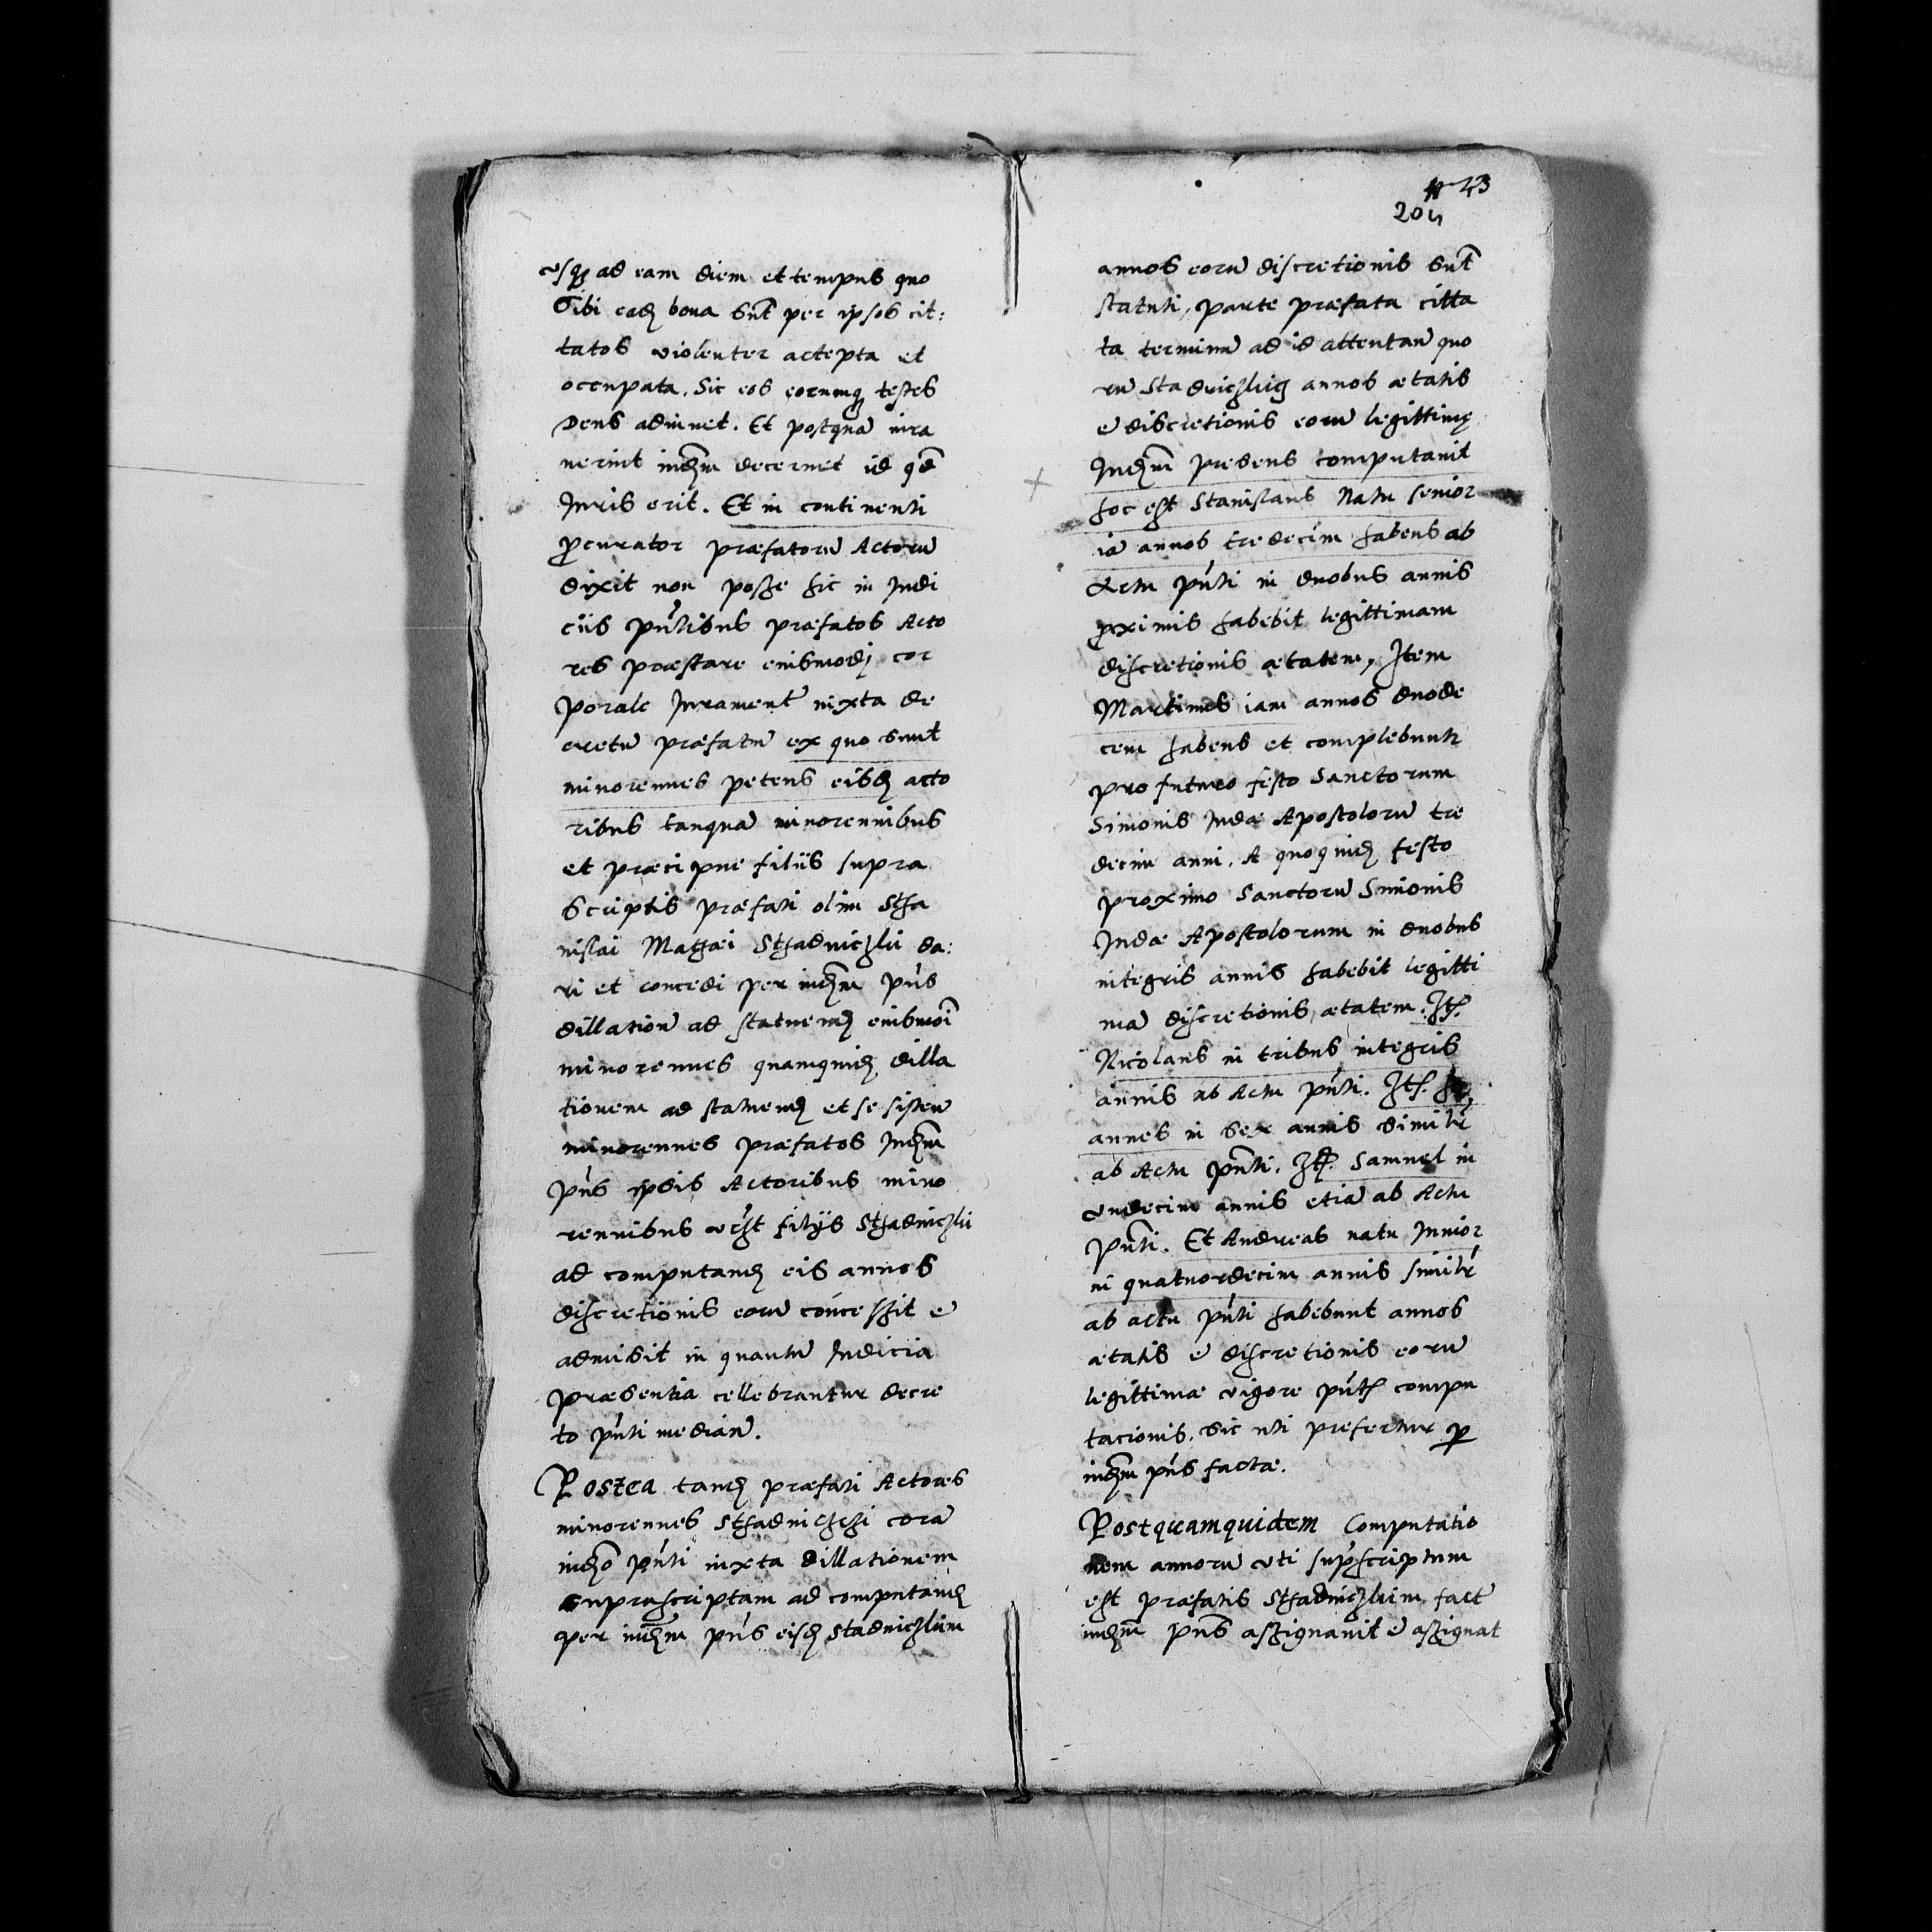 usq₃ ad eam diem et tempus quo
Sibi eadē bona sūt per ipsos cit:
tatos violenter accepta et
occupata. Sic eos eorumq₃ testes
Deus adiuvet. Et postquā iura
verint iudm̄ decernet id qd̄
Juris erit. Et in continenti
ꝓcurator præfatorū Actorū
dixit non posse hic in Judi
ciis pn̄tibus præfatos Acto
res præstare eiusmodi cor
porale Jurament̄ iuxta de
cretū præfatū ex quo sunt
minorennes petens eisd̄ acto
ribus tanquā minorennibus
et præcipue filiis supra
Scriptis præfati olim Stha
nislai Mathæi Sthadniczki da:
ri et concedi per iudm̄ pn̄s
dillationē ad statuend̄ eiusmōi
minorennes quamquid̄ dilla
tionem ad statuend̄ et se sistend̄
minorennes præfatos Judm̄
pn̄s ipsis Actoribus mino
rennibus filijs Sthadniczki
ad computand̄ eis annos
discretionis eorū concessit e
admisit in quantū Judicia
præsentia cellebrantur decre
to pn̄ti mediān.
Postea tand̄ præfati Actores
minorennes Sthadniczczi corā
iudō pn̄ti iuxta dillationem
supra scriptam ad computand̄
per iudm̄ pn̄s eisd̄ Stadniczkim
23
204
annos eorū discretionis sūt
statuti, parte præfata citta
ta terminū ad id attentan̄ quo
rū Stadniczkich annos ætatis
e discretionis eorū legittimę
Judm̄ præsens computavit
hoc est Stanislaus Natu senior
iā annos tredecim habens ab
Actu pn̄ti in duobus annis
ꝓximis habebit legittimam
discretionis ætatem, Item
Martinus iam annos duode
cem habens et complebunt̄
pro futuro festo Sanctorum
Simonis Judæ Apostolorū tre
decim anni. A quoquid̄ festo
proximo Sanctorū Simonis
Judæ Apostolorum in duobus
integris annis habebit legitti
mā discretionis ætatem. Itē.
Nicolaus in tribus integris
annis ab Actu pn̄ti. Itē. Jo
annes in sex annis similr̄
ab Actu pn̄ti. Itē. Samuel in
undecim annis etiā ab Actu
pn̄ti. Et Andreas natu Junior
in quatuordecim annis similr̄
ab actu pn̄ti habebunt annos
ætatis e discretionis eorū
legittimæ vigore pn̄tē compu
tacionis. Sic uti præfertur ꝑ
iudm̄ pn̄s factæ.
Postquamquidem Computatio
nem annorū uti supscriptum
est præfatis Sthadniczkim fact̄
iudm̄ pn̄s assignavit e assignat